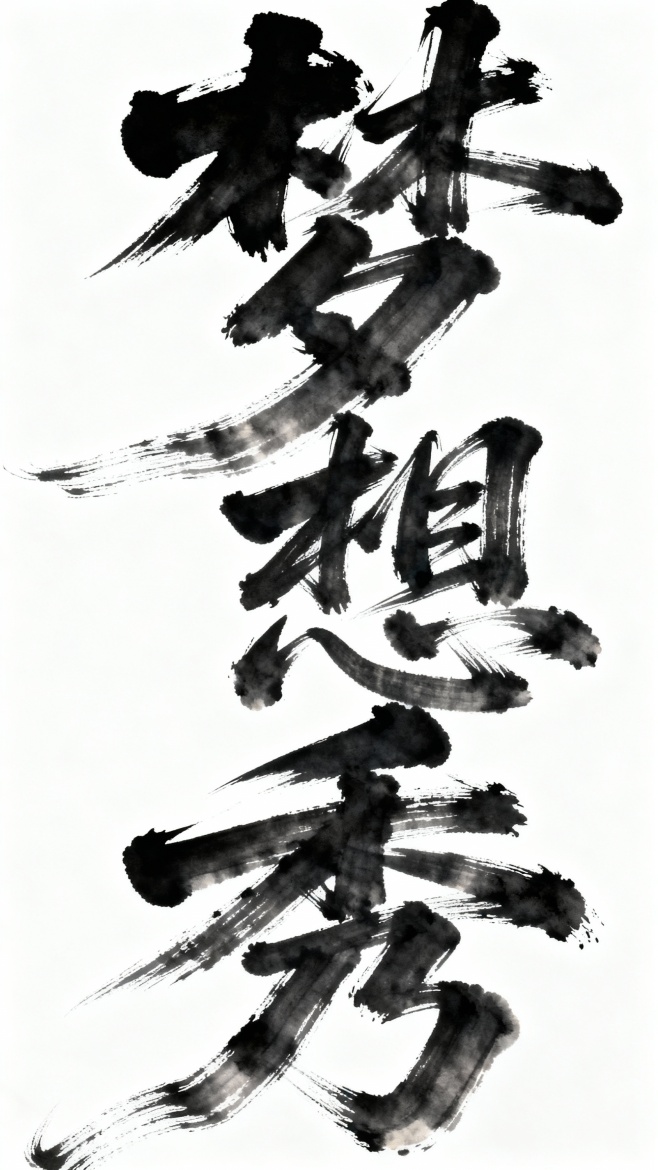 梦想秀